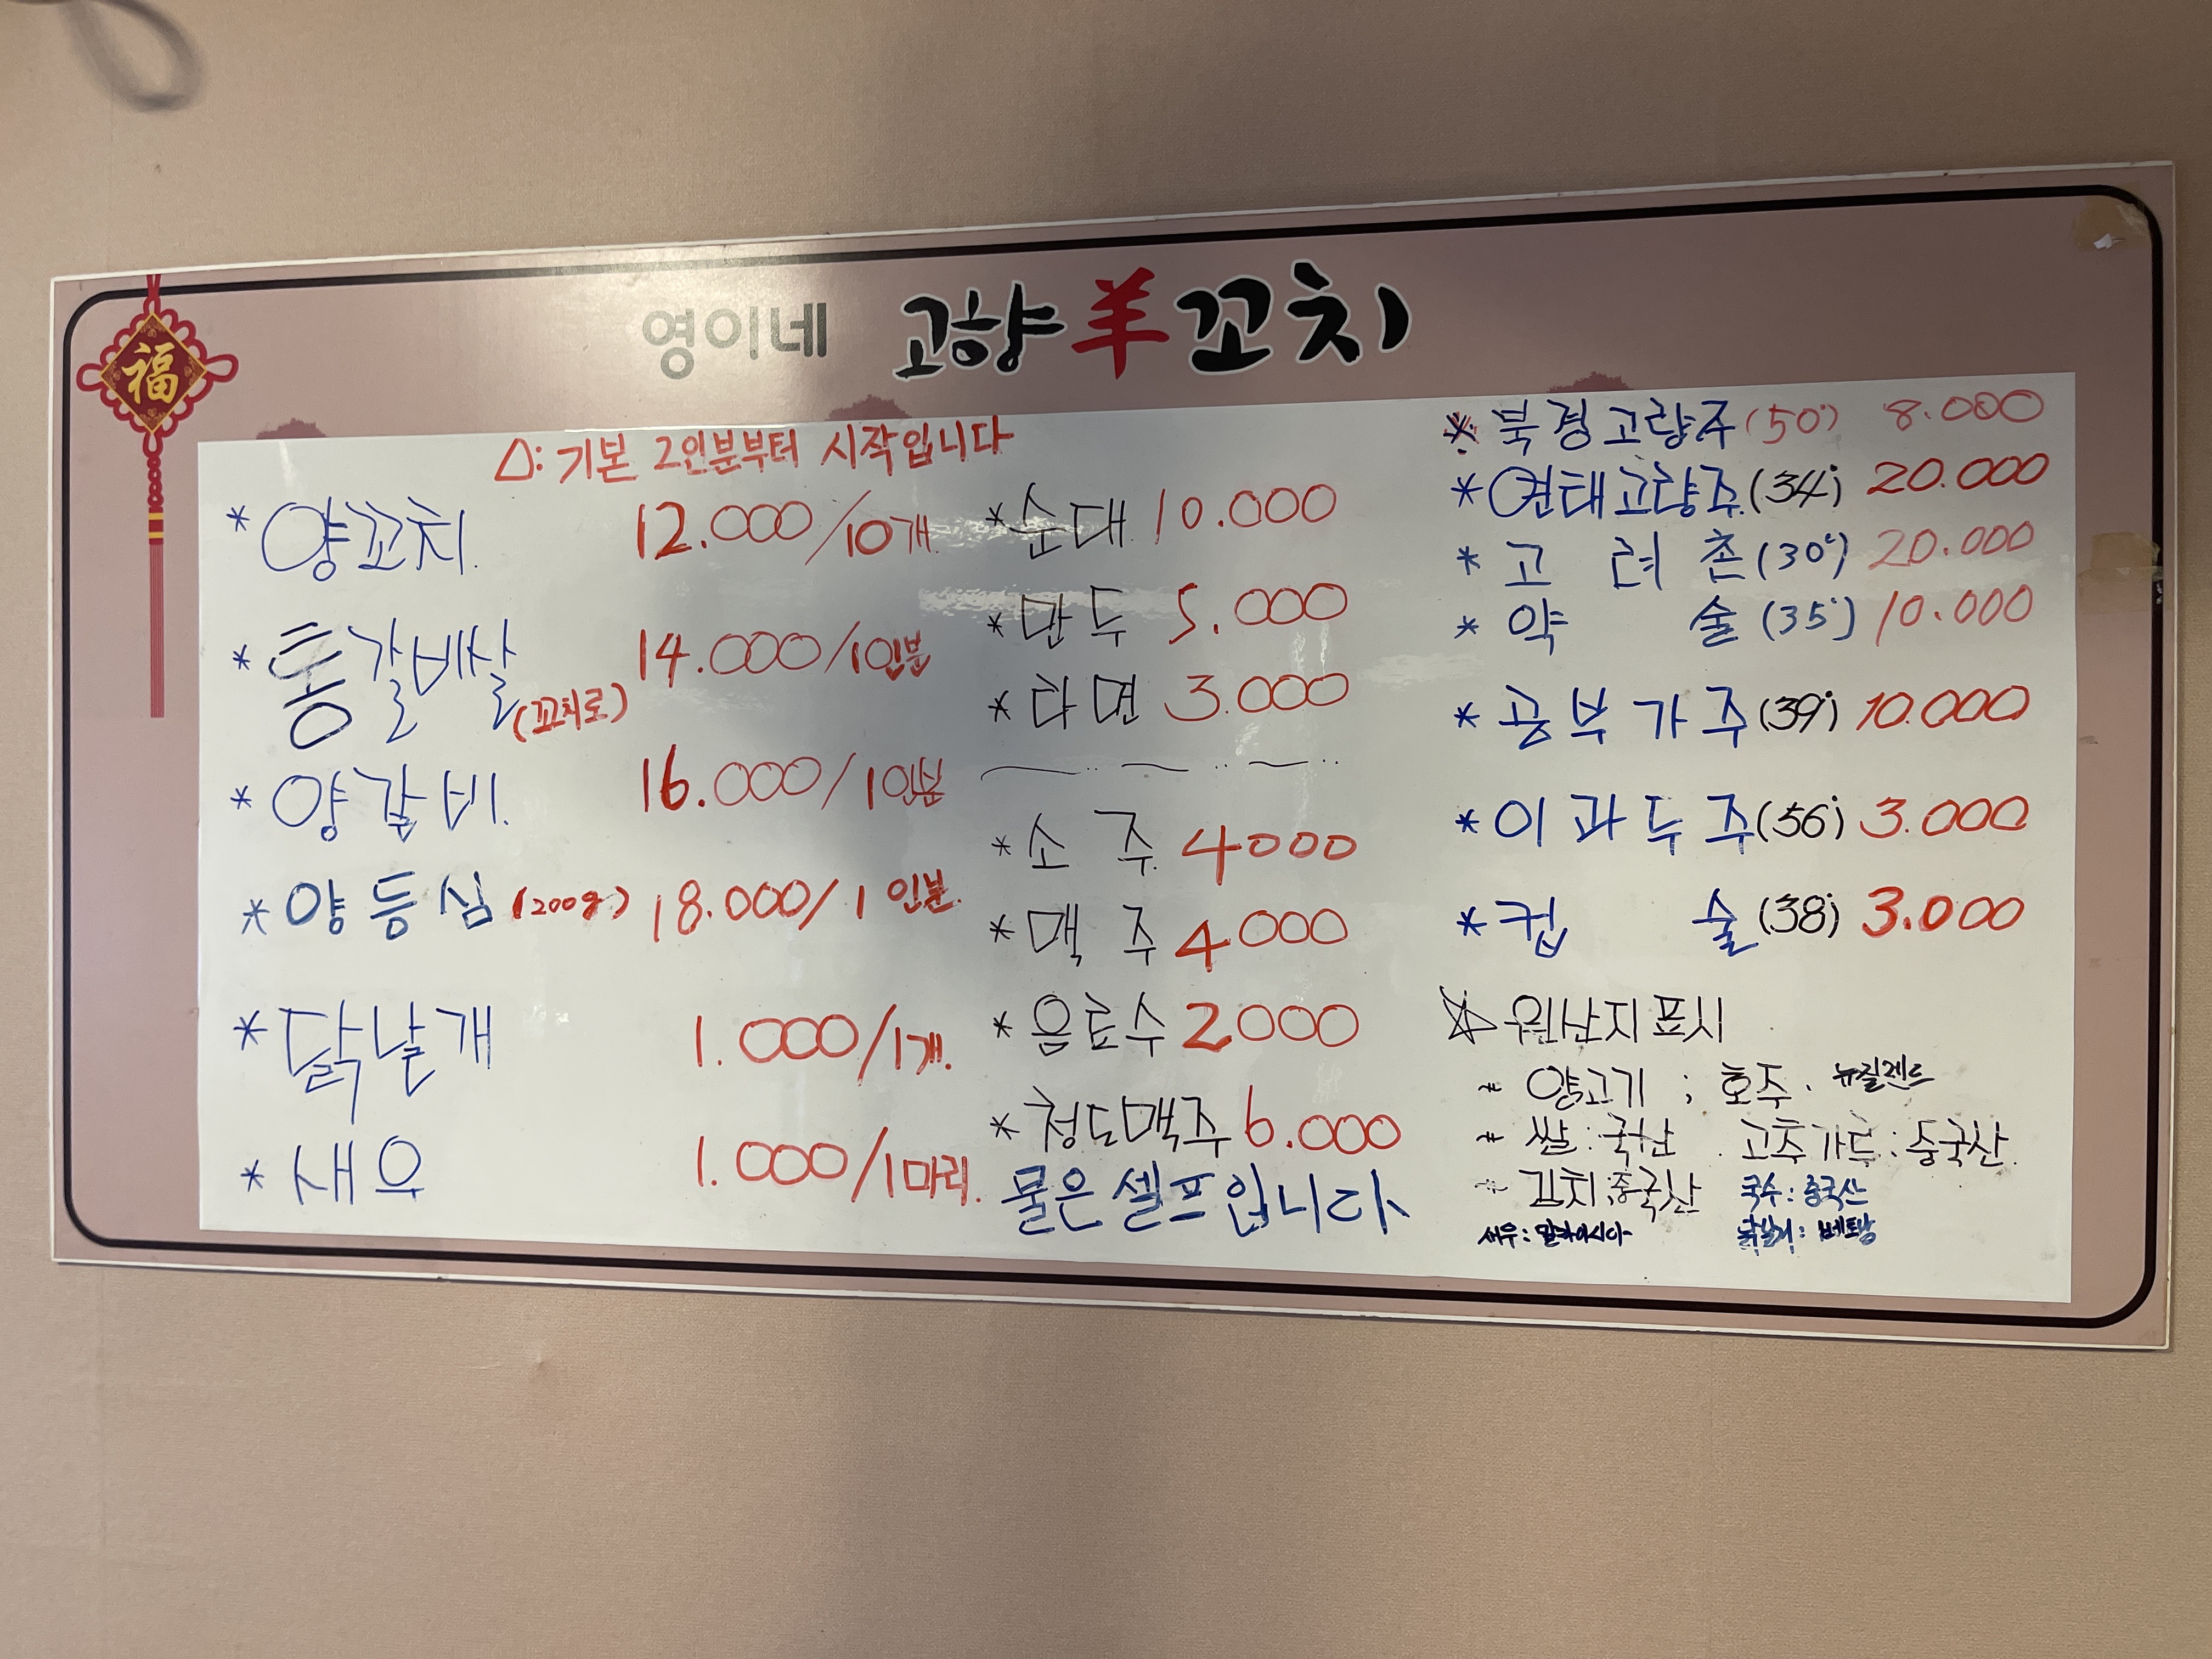 福
영이네 고향羊꼬치
△: 기본 2인분부터 시작입니다
* 양꼬치 12.000/10개
* 통갈비살 (꼬치로) 14.000/1인분
* 양갈비 16.000/1인분
* 양등심 (200g) 18.000/1인분
* 닭날개 1.000/1개
* 새우 1.000/1마리
* 순대 10.000
* 만두 5.000
* 라면 3.000
* 소주 4000
* 맥주 4000
* 음료수 2000
* 청도맥주 6.000
물은 셀프입니다
* 북경고량주 (50°) 8.000
* 연태고량주 (34°) 20.000
* 고려촌 (30°) 20.000
* 약술 (35°) 10.000
* 공부가주 (39°) 10.000
* 이과두주 (56°) 3.000
* 컵술 (38°) 3.000
☆ 원산지표시
* 양고기 ; 호주. 뉴질랜드
* 쌀 : 국산 고추가루 : 중국산
* 김치 : 중국산 국수 : 중국산
새우 : 말라이시아 닭날개 : 베트남